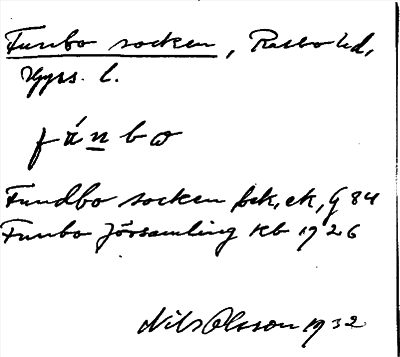 Funbo socken, Rasbo hd,
Upps. l.
fánbω
Fundbo socken Jck, ek, G 84
Funbo församling Kb 1926
Nils Olsson 1932